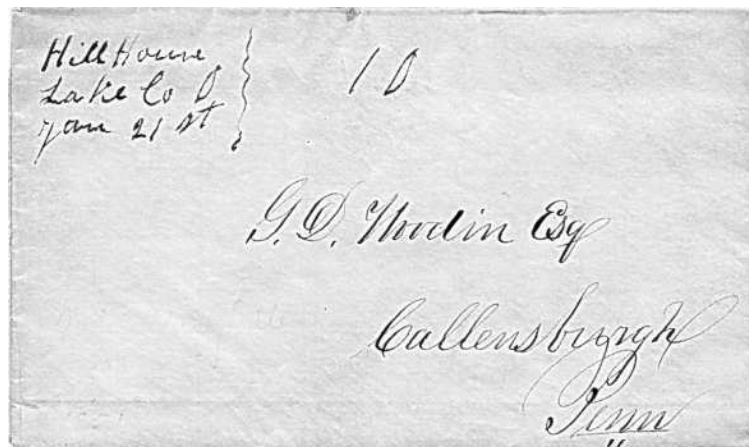 Hill House
Lake Co O
Jan 21 st
10
G. D. Woodin Esq
Callensburgh
Penn